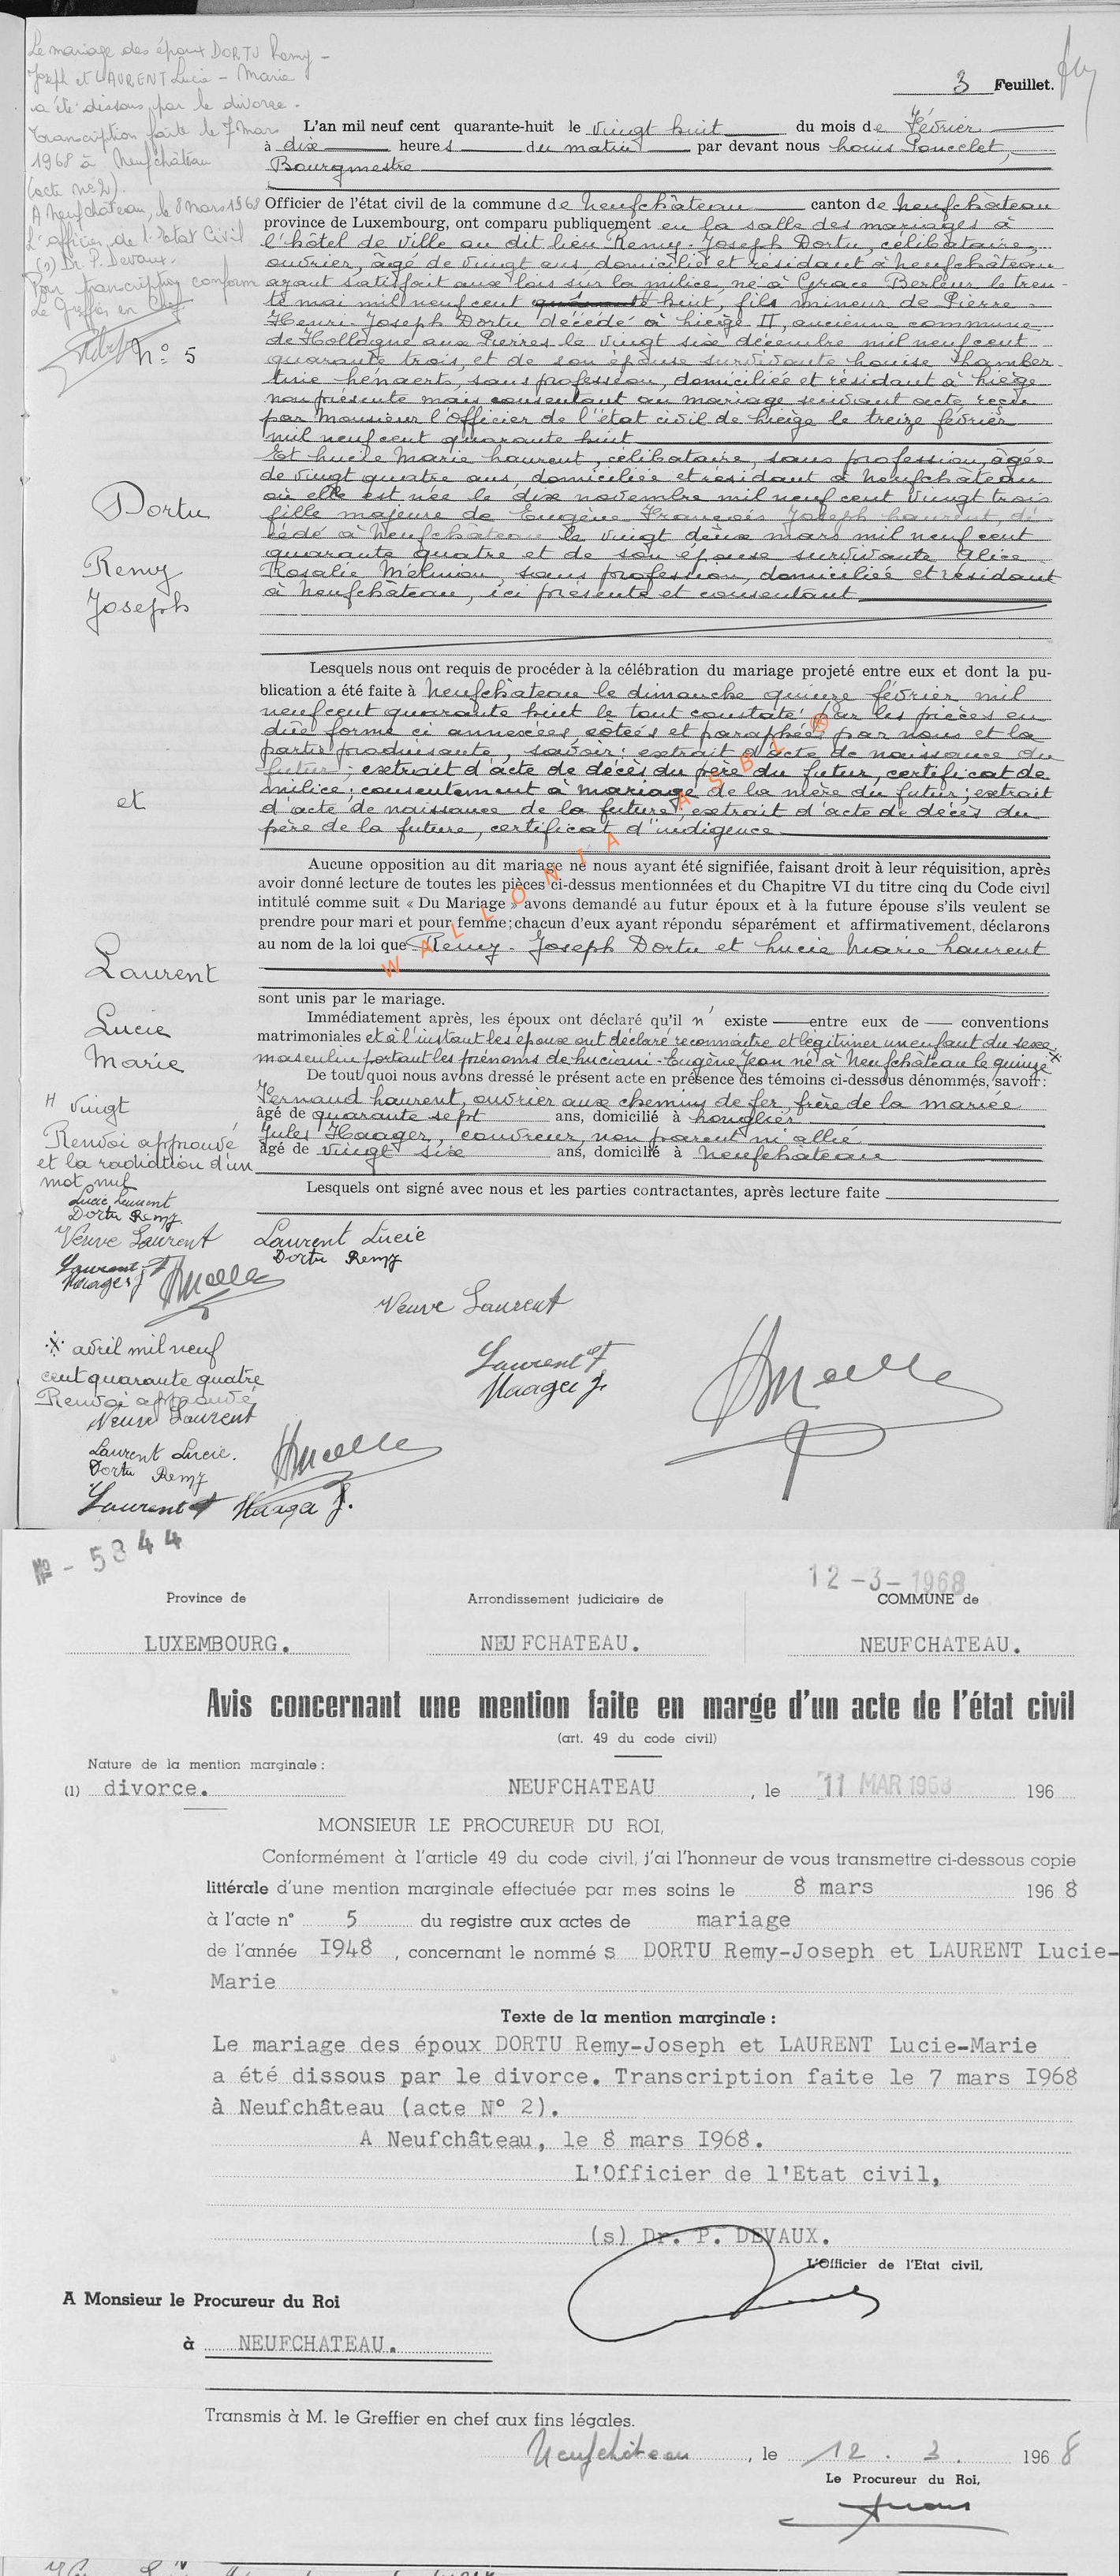 Le mariage des époux DORTU Remy-
Joseph et LAURENT Lucie - Marie
a été dissous par le divorce.
Transcription faite le 7 mars
1968 à Neufchâteau
(acte n° 2).
A Neufchâteau, le 8 mars 1968
L'officier de l'Etat Civil
(s) Dr. P. Devaux.
Pour transcription conforme
Le Greffier en Chef
N° 5
3 Feuillet.
L'an mil neuf cent quarante-huit le vingt huit du mois de Février
à dix heures du matin par devant nous Louis Poncelet,
Bourgmestre
Officier de l'état civil de la commune de Neufchâteau canton de Neufchâteau
province de Luxembourg, ont comparu publiquement en la salle des mariages à
l'hôtel de ville au dit lieu Remy-Joseph Dortu, célibataire,
ouvrier, âgé de vingt ans, domicilié et résidant à Neufchâteau
ayant satisfait aux lois sur la milice, né à Grâce Berleur le tren-
te mai mil neuf cent huit, fils mineur de Pierre-
Henri-Joseph Dortu décédé à Liège II, ancienne commune
de Hollogne aux Pierres le vingt six décembre mil neuf cent
quarante trois, et de son épouse survivante Louise Lamber-
tine Lénaerts, sans profession, domiciliée et résidant à Liège
non présente mais consentant au mariage suivant acte reçu
par Monsieur l'Officier de l'état civil de Liège le treize février
mil neuf cent quarante huit
Et Lucie Marie Laurent, célibataire, sans profession, âgée
de vingt quatre ans, domiciliée et résidant à Neufchâteau
où elle est née le dix novembre mil neuf cent vingt trois
fille majeure de Eugène François Joseph Laurent, dé-
cédé à Neufchâteau le vingt deux mars mil neuf cent
quarante quatre et de son épouse survivante Alice
Rosalie Mélinion, sans profession, domiciliée et résidant
à Neufchâteau, ici présente et consentant
Dortu
Remy
Joseph
et
Laurent
Lucie
Marie
Lesquels nous ont requis de procéder à la célébration du mariage projeté entre eux et dont la pu-
blication a été faite à Neufchâteau le dimanche quinze février mil
neuf cent quarante huit le tout constaté par les pièces en
due forme ci annexées, côtées et paraphées par nous et la
partie produisante, savoir: extrait d'acte de naissance du
futur; extrait d'acte de décès du père du futur, certificat de
milice; consentement à mariage de la mère du futur; extrait
d'acte de naissance de la future; extrait d'acte de décès du
père de la future, certificat d'indigence
WALLONIA ASBL ®
Aucune opposition au dit mariage ne nous ayant été signifiée, faisant droit à leur réquisition, après
avoir donné lecture de toutes les pièces ci-dessus mentionnées et du Chapitre VI du titre cinq du Code civil
intitulé comme suit « Du Mariage » avons demandé au futur époux et à la future épouse s'ils veulent se
prendre pour mari et pour femme; chacun d'eux ayant répondu séparément et affirmativement, déclarons
au nom de la loi que Remy-Joseph Dortu et Lucie Marie Laurent
sont unis par le mariage.
Immédiatement après, les époux ont déclaré qu'il n'existe entre eux de conventions
matrimoniales et à l'instant les époux ont déclaré reconnaître et légitimer un enfant du sexe
masculin portant les prénoms de Luciani-Eugène Jean né à Neufchâteau le quinze
De tout quoi nous avons dressé le présent acte en présence des témoins ci-dessous dénommés, savoir:
Fernand Laurent, ouvrier aux chemins de fer, frère de la mariée
âgé de quarante sept ans, domicilié à Longlier
Jules Haager, couvreur, non parent ni allié
âgé de vingt six ans, domicilié à Neufchâteau
Lesquels ont signé avec nous et les parties contractantes, après lecture faite
H vingt
Renvoi approuvé
et la radiation d'un
mot nul
Lucie Laurent
Dortu Remy
Veuve Laurent
Laurent F
Haager J
Laurent Lucie
Dortu Remy
Veuve Laurent
Laurent F
Haager J.
* avril mil neuf
cent quarante quatre
Renvoi approuvé
Veuve Laurent
Laurent Lucie.
Dortu Remy
Laurent F Haager J.
N° - 5844
12-3-1968
Province de
LUXEMBOURG.
Arrondissement judiciaire de
NEUFCHATEAU.
COMMUNE de
NEUFCHATEAU.
Avis concernant une mention faite en marge d'un acte de l'état civil
(art. 49 du code civil)
Nature de la mention marginale :
(1) divorce.
NEUFCHATEAU , le 11 MAR 1968 196
MONSIEUR LE PROCUREUR DU ROI,
Conformément à l'article 49 du code civil, j'ai l'honneur de vous transmettre ci-dessous copie
littérale d'une mention marginale effectuée par mes soins le 8 mars 1968
à l'acte n° 5 du registre aux actes de mariage
de l'année I948 , concernant le nommé s DORTU Remy-Joseph et LAURENT Lucie-
Marie
Texte de la mention marginale :
Le mariage des époux DORTU Remy-Joseph et LAURENT Lucie-Marie
a été dissous par le divorce. Transcription faite le 7 mars I968
à Neufchâteau (acte N° 2).
A Neufchâteau, le 8 mars I968.
L'Officier de l'Etat civil,
(s) Dr. P. DEVAUX.
L'Officier de l'Etat civil,
A Monsieur le Procureur du Roi
à NEUFCHATEAU.
Transmis à M. le Greffier en chef aux fins légales.
Neufchâteau , le 12 . 3 . 1968
Le Procureur du Roi,